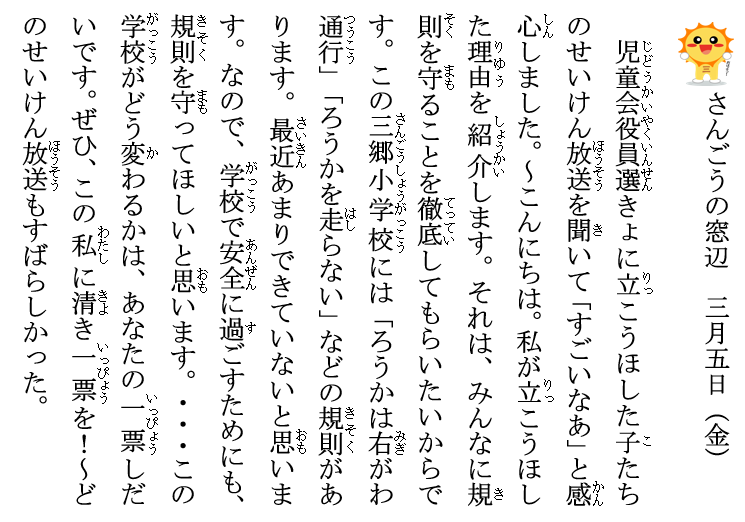 さんごうの窓辺　三月五日（金）
児童会役員選きょに立こうほした子たち
のせいけん放送を聞いて「すごいなあ」と感
心しました。～こんにちは。私が立こうほし
た理由を紹介します。それは、みんなに規
則を守ることを徹底してもらいたいからで
す。この三郷小学校には「ろうかは右がわ
通行」「ろうかを走らない」などの規則があ
ります。最近あまりできていないと思いま
す。なので、学校で安全に過ごすためにも、
規則を守ってほしいと思います。・・・この
学校がどう変わるかは、あなたの一票しだ
いです。ぜひ、この私に清き一票を！～ど
のせいけん放送もすばらしかった。